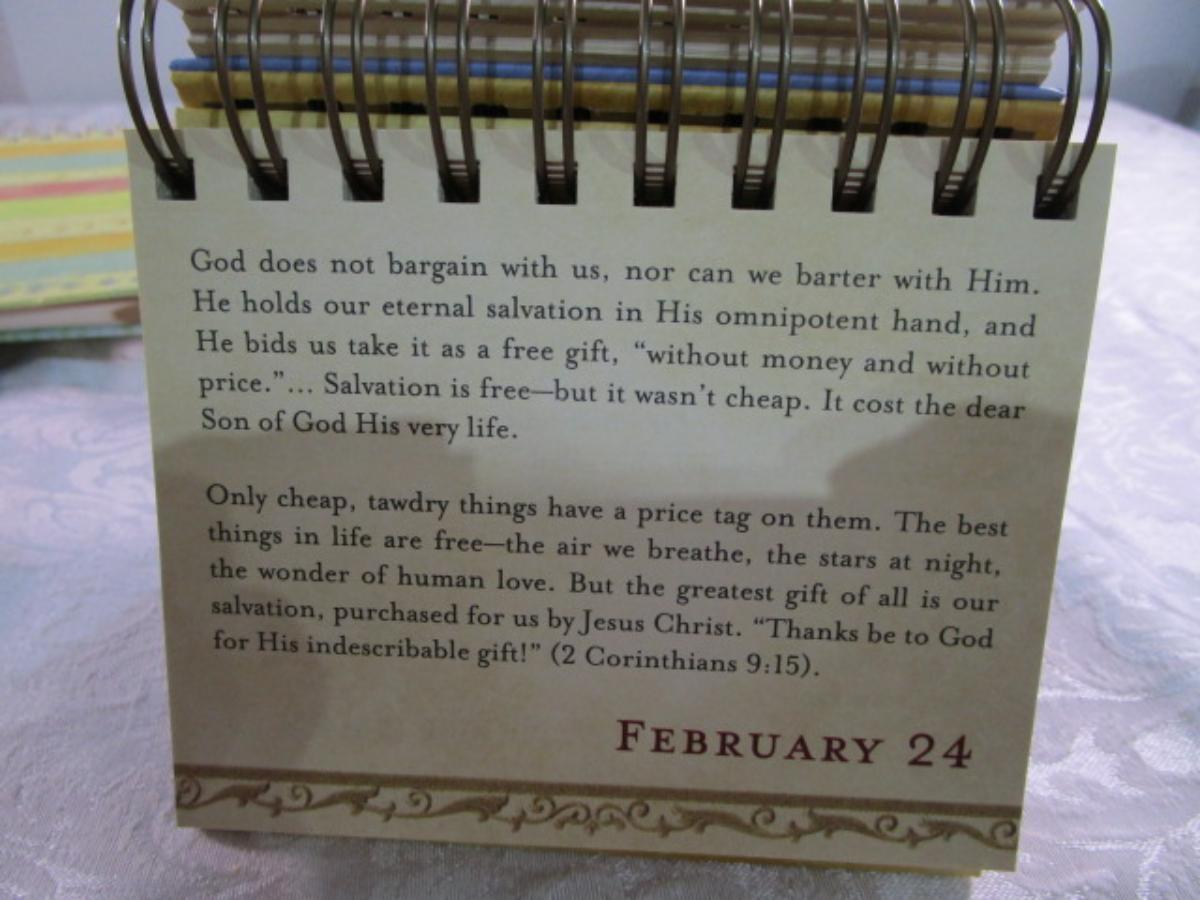 God does not bargain with us, nor can we barter with Him.
He holds our eternal salvation in His omnipotent hand, and
He bids us take it as a free gift, “without money and without
price.”... Salvation is free—but it wasn't cheap. It cost the dear
Son of God His very life.
Only cheap, tawdry things have a price tag on them. The best
things in life are free—the air we breathe, the stars at night,
the wonder of human love. But the greatest gift of all is our
salvation, purchased for us by Jesus Christ. “Thanks be to God
for His indescribable gift!” (2 Corinthians 9:15).
FEBRUARY 24